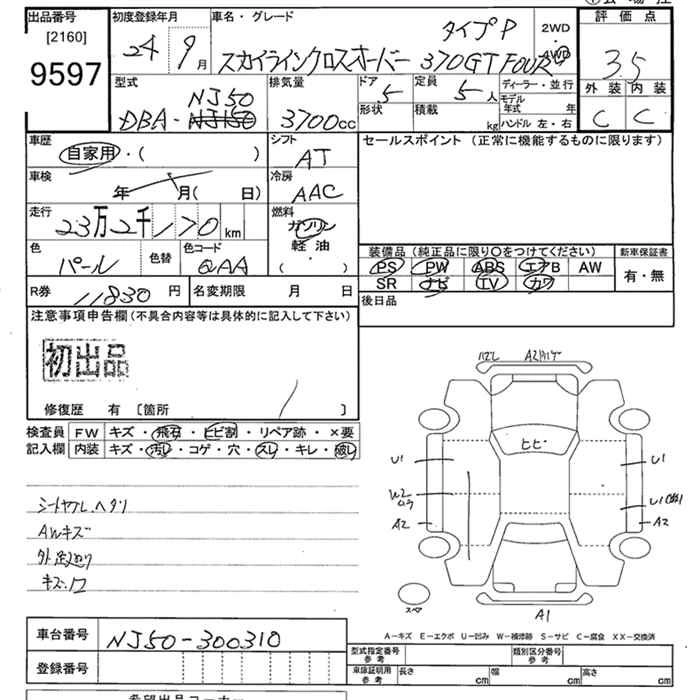 出品番号
[2160]
9597
初度登録年月
24 9月
車名・グレード
タイプP
スカイラインクロスオーバー 370GT FOUR
2WD
4WD
評価点
3.5
外装 内装
C C
型式
NJ50
DBA-NJ150
排気量
3700cc
ドア
5
形状
定員
5人
積載
kg
ディーラー・並行
モデル年式 年
ハンドル 左・右
車歴
自家用・( )
シフト
AT
車検
年 月( 日)
冷房
AAC
走行
23万2千170km
燃料
ガソリン
軽油
( ・ )
色
パール
色替
色コード
QAA
セールスポイント (正常に機能するものに限ります)
装備品 (純正品に限り○をつけてください)
PS PW ABS エアB AW
SR ナビ TV カワ
新車保証書
有・無
R券
11830円
名変期限 月 日
後日品
注意事項申告欄 (不具合内容等は具体的に記入して下さい)
初出品
修復歴 有 [箇所 ]
検査員 FW キズ・飛石・ヒビ割・リペア跡・×要
記入欄 内装 キズ・汚レ・コゲ・穴・スレ・キレ・破レ
シートヤブレ、ヘタリ
AWキズ
外
キズ・凹
A2
ヒビ
U1
U1
W2
ムラ
U1
A2
A2
スペア
A1
A-キズ E-エクボ U-凹み W-補修跡 S-サビ C-腐食 XX-交換済
車台番号
NJ50-300310
登録番号
型式指定番号
参考
類別区分番号
参考
車庫証明用
参考
長さ cm
幅 cm
高さ cm
希望出品コーナー